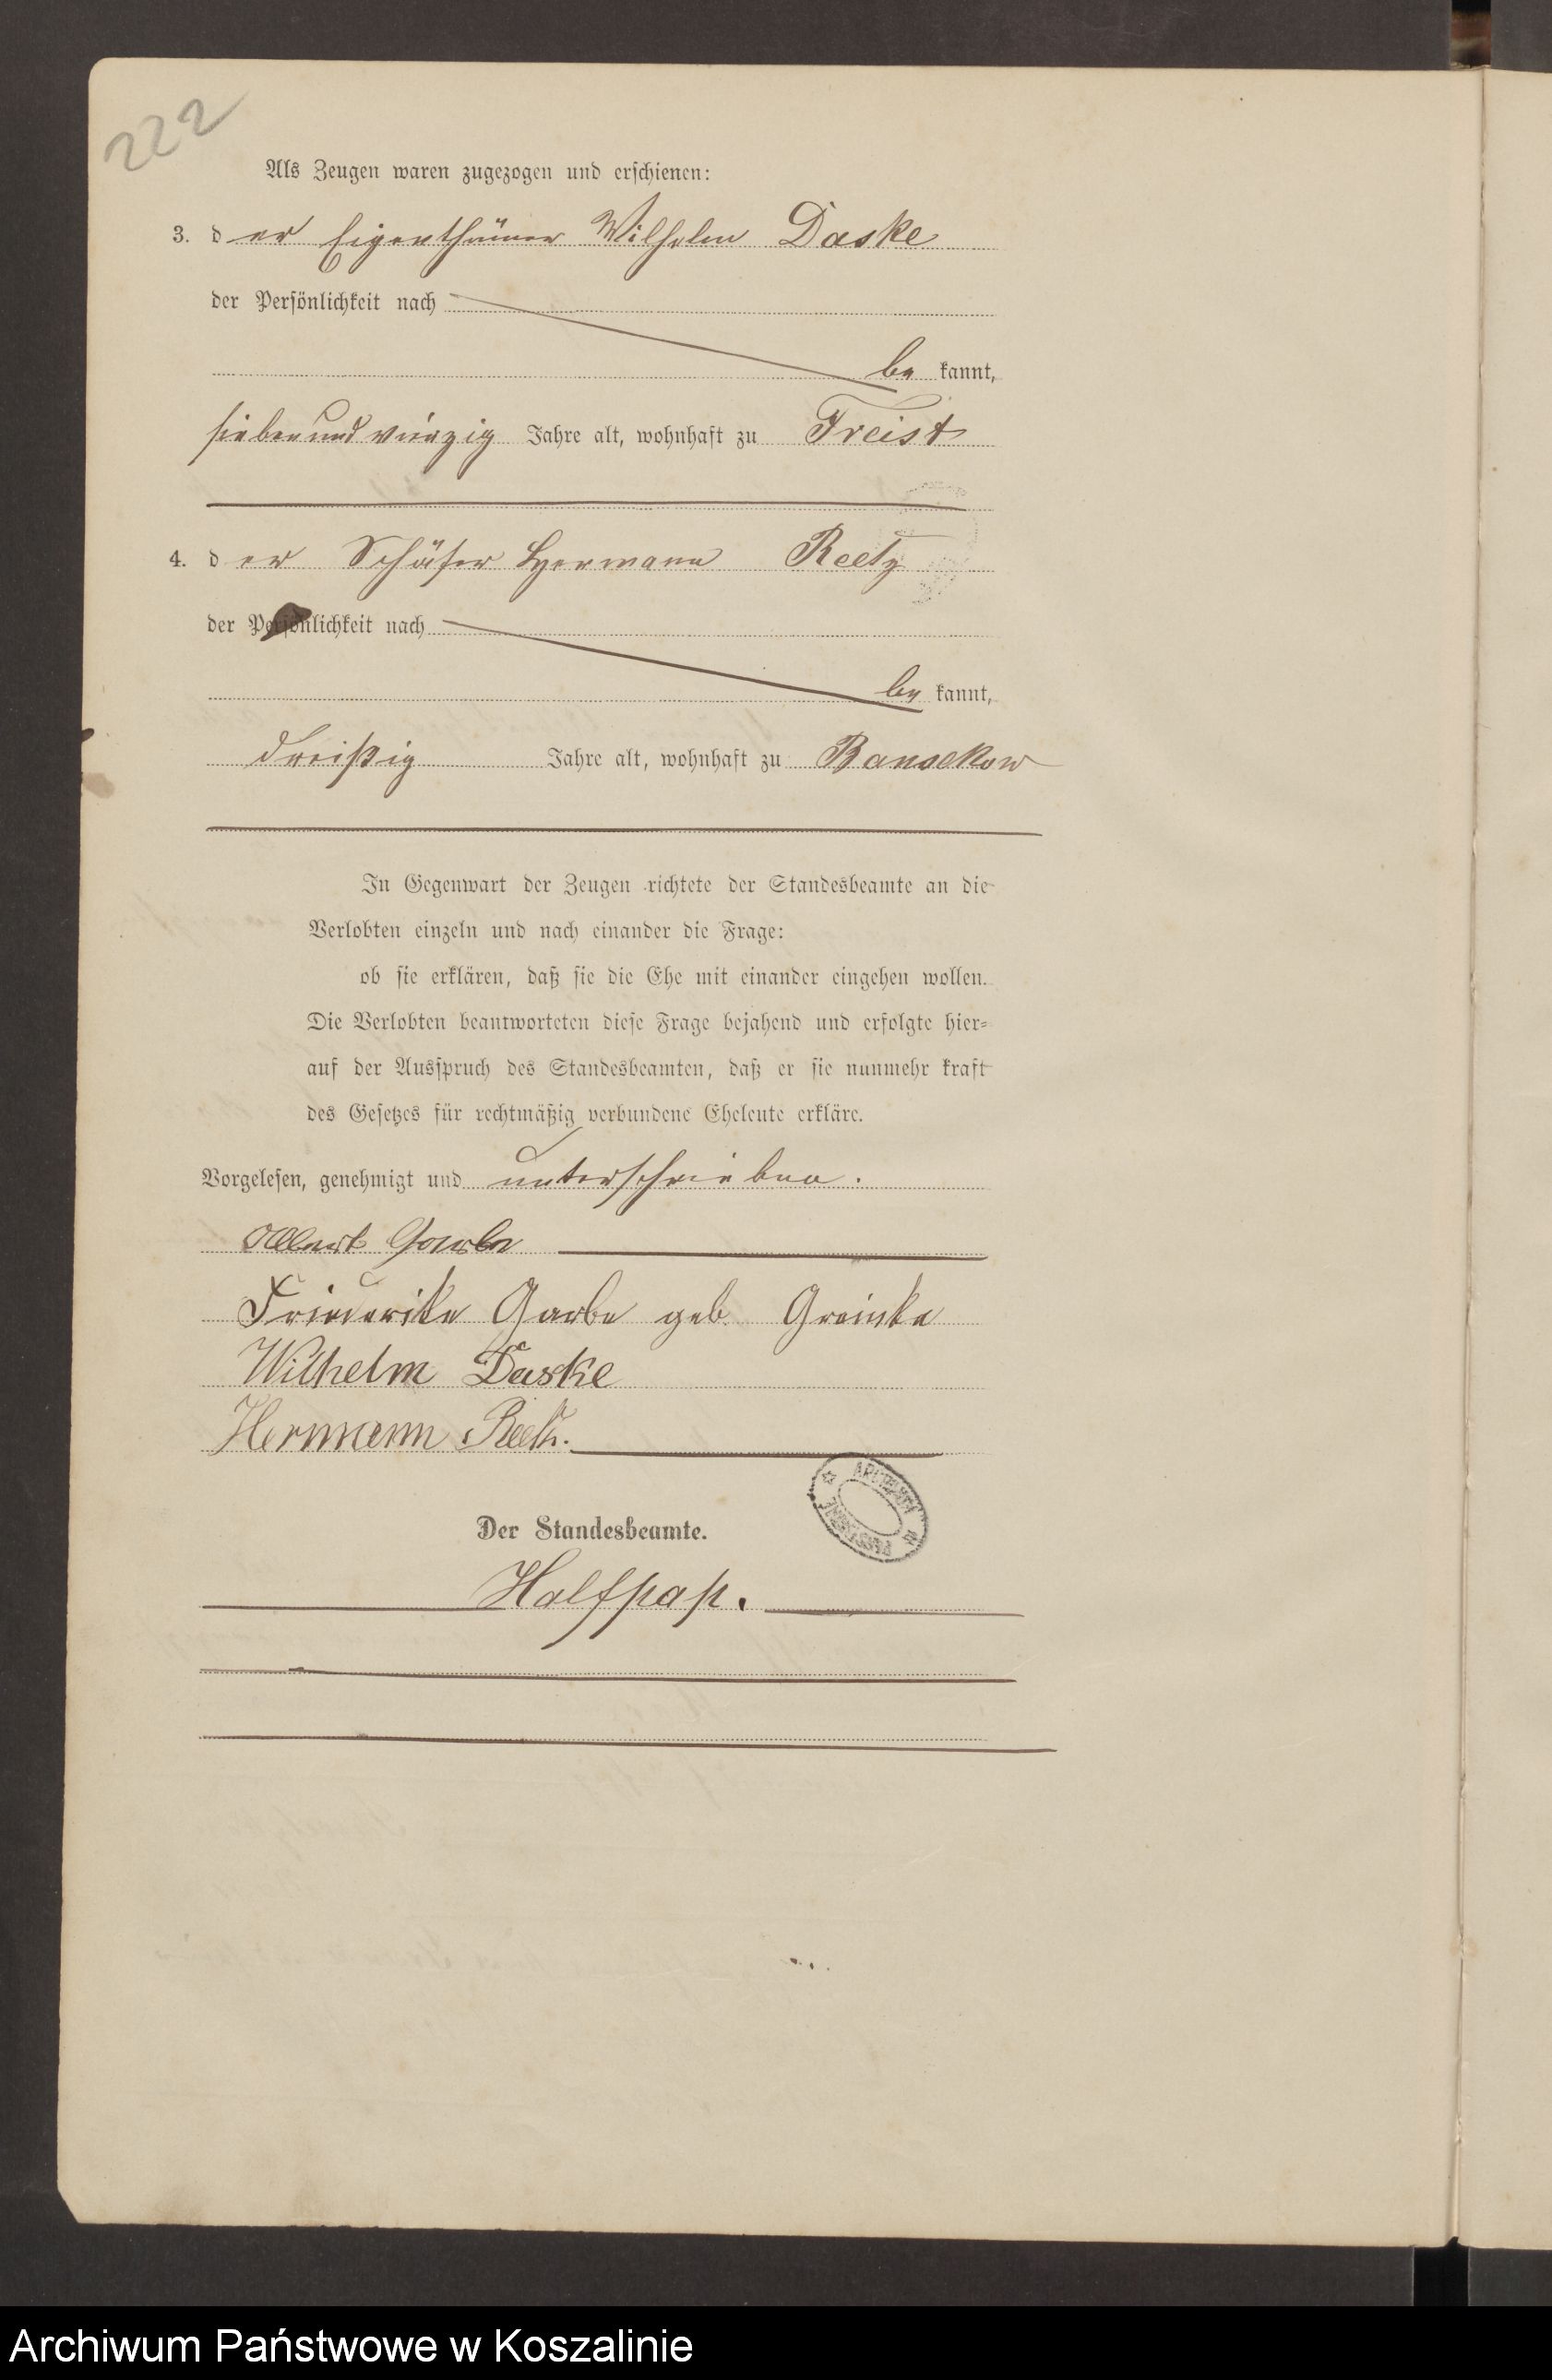 222
Als Zeugen waren zugezogen und erschienen:
3. der Eigenthümer Wilhelm Daske
der Persönlichkeit nach
be kannt,
siebenundvierzig Jahre alt, wohnhaft zu Freist
4. der Schäfer Hermann Reetz
der Persönlichkeit nach
be kannt,
dreißig Jahre alt, wohnhaft zu Bansekow
In Gegenwart der Zeugen richtete der Standesbeamte an die
Verlobten einzeln und nach einander die Frage:
ob sie erklären, daß sie die Ehe mit einander eingehen wollen.
Die Verlobten beantworteten diese Frage bejahend und erfolgte hier-
auf der Ausspruch des Standesbeamten, daß er sie nunmehr kraft
des Gesetzes für rechtmäßig verbundene Eheleute erkläre.
Vorgelesen, genehmigt und unterschrieben.
Albert Garbe
Friederike Garbe geb. Greinke
Wilhelm Daske
Hermann Reetz.
Der Standesbeamte.
Halfpap.
Archiwum Państwowe w Koszalinie